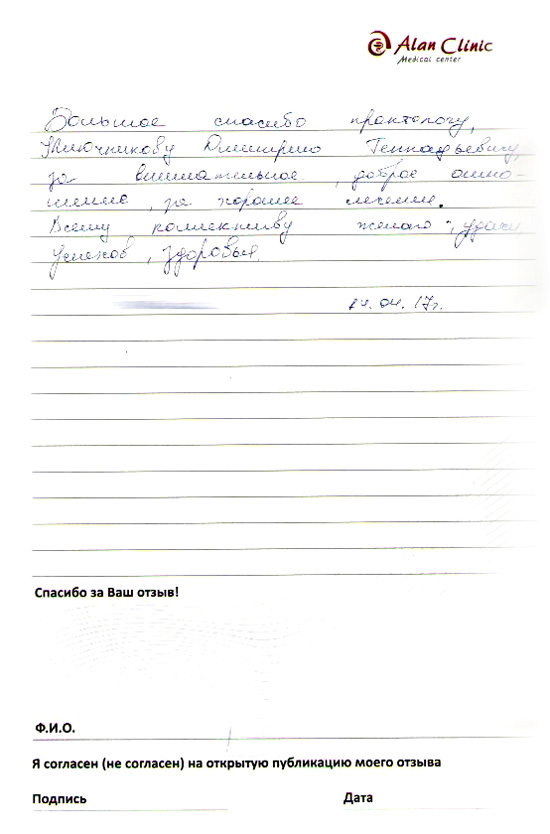 Alan Clinic
Medical center
Большое спасибо проктологу,
Ключникову Дмитрию Геннадьевичу,
за внимательное, доброе отно-
шение, за хорошее лечение.
Всему коллективу желаю: удачи,
успехов, здоровья.
14.04.17г.
Спасибо за Ваш отзыв!
Ф.И.О.
Я согласен (не согласен) на открытую публикацию моего отзыва
Подпись Дата